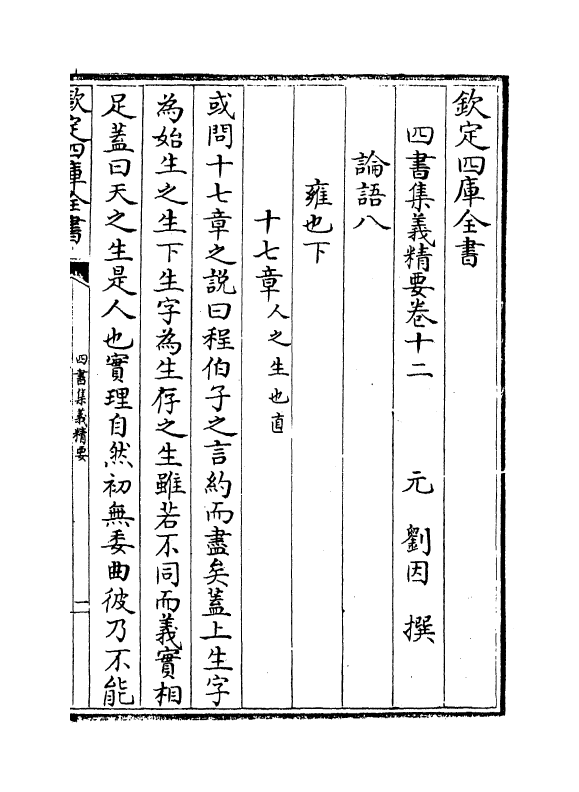 欽定四庫全書
四書集義精要卷十二　　元　劉因　撰
論語八
雍也下
十七章人之生也直
或問十七章之說曰程伯子之言約而盡矣蓋上生字
為始生之生下生字為生存之生雖若不同而義實相
足蓋曰天之生是人也實理自然初無委曲彼乃不能
欽定四庫全書
四書集義精要